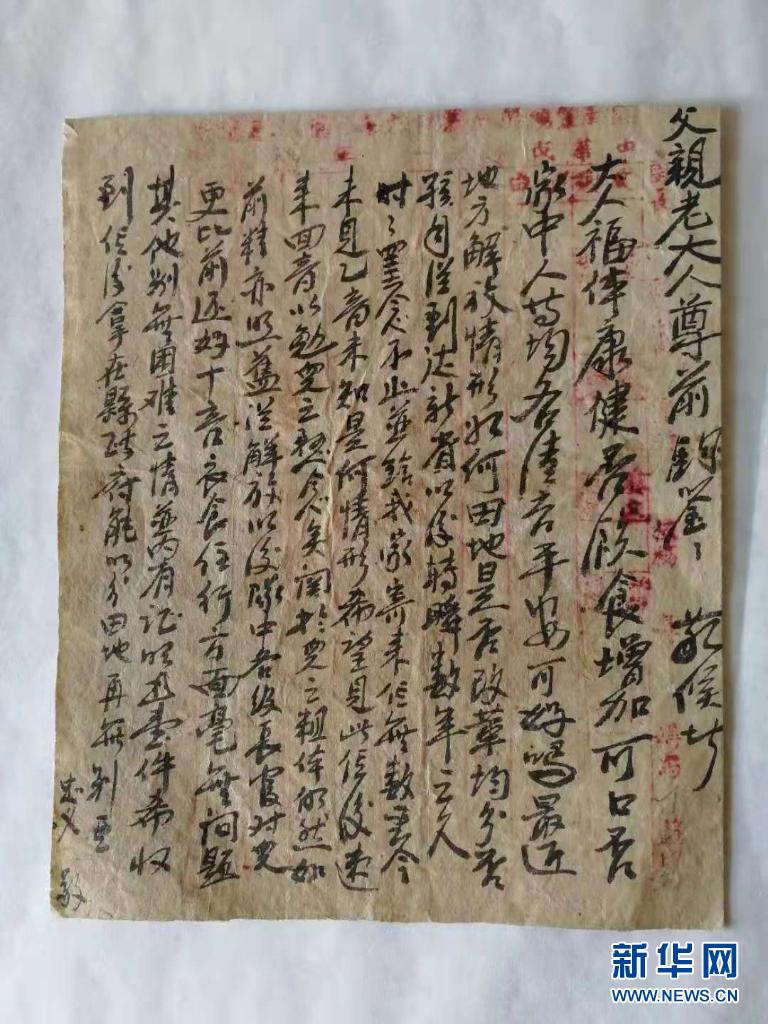 父親老大人尊前 敬候
大人福体康健否飲食增加可口否
家中人等均各清吉平安可好嗎最近
地方解放情形如何田地是否改革均分否
孩自從到达新省以後轉瞬数年之久
时々罣念不止並給我家寄来信無数至今
未見乙音未知是何情形希望見此信後速
来回音以勉児之愁念矣関於児之粗体仍然如
前精亦照舊從解放以後隊中各级長官对児
更比前还好十音衣食住行方面毫無问题
其他别無困难之情兹内有证明書壹件希收
到信後拿在縣政府能以分田地再無别
敬
新华网
WWW.NEWS.CN